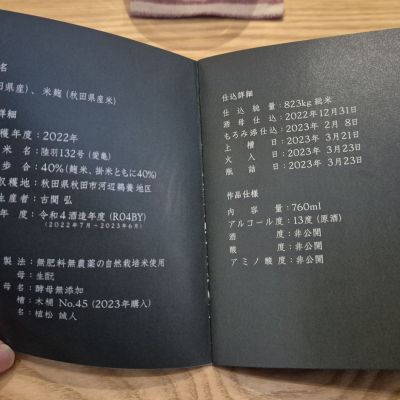 名
田県産)、米麹(秋田県産米)
詳細
穫年度：2022年
米 名：陸羽132号(愛亀)
歩 合：40%(麹米、掛米ともに40%)
収穫地：秋田県秋田市河辺鵜養地区
生産者：古関 弘
年 度：令和4酒造年度(R04BY)
(2022年7月～2023年6月)
製法：無肥料無農薬の自然栽培米使用
母：生酛
母名：酵母無添加
槽：木桶 No.45(2023年購入)
名：植松 誠人
仕込詳細
仕込総量：823kg 総米
酒母仕込：2022年12月31日
もろみ添仕込：2023年 2月 8日
上槽日：2023年 3月21日
火入日：2023年 3月23日
瓶詰日：2023年 3月23日
作品仕様
内容量：760ml
アルコール度：13度(原酒)
酒度：非公開
酸度：非公開
アミノ酸度：非公開